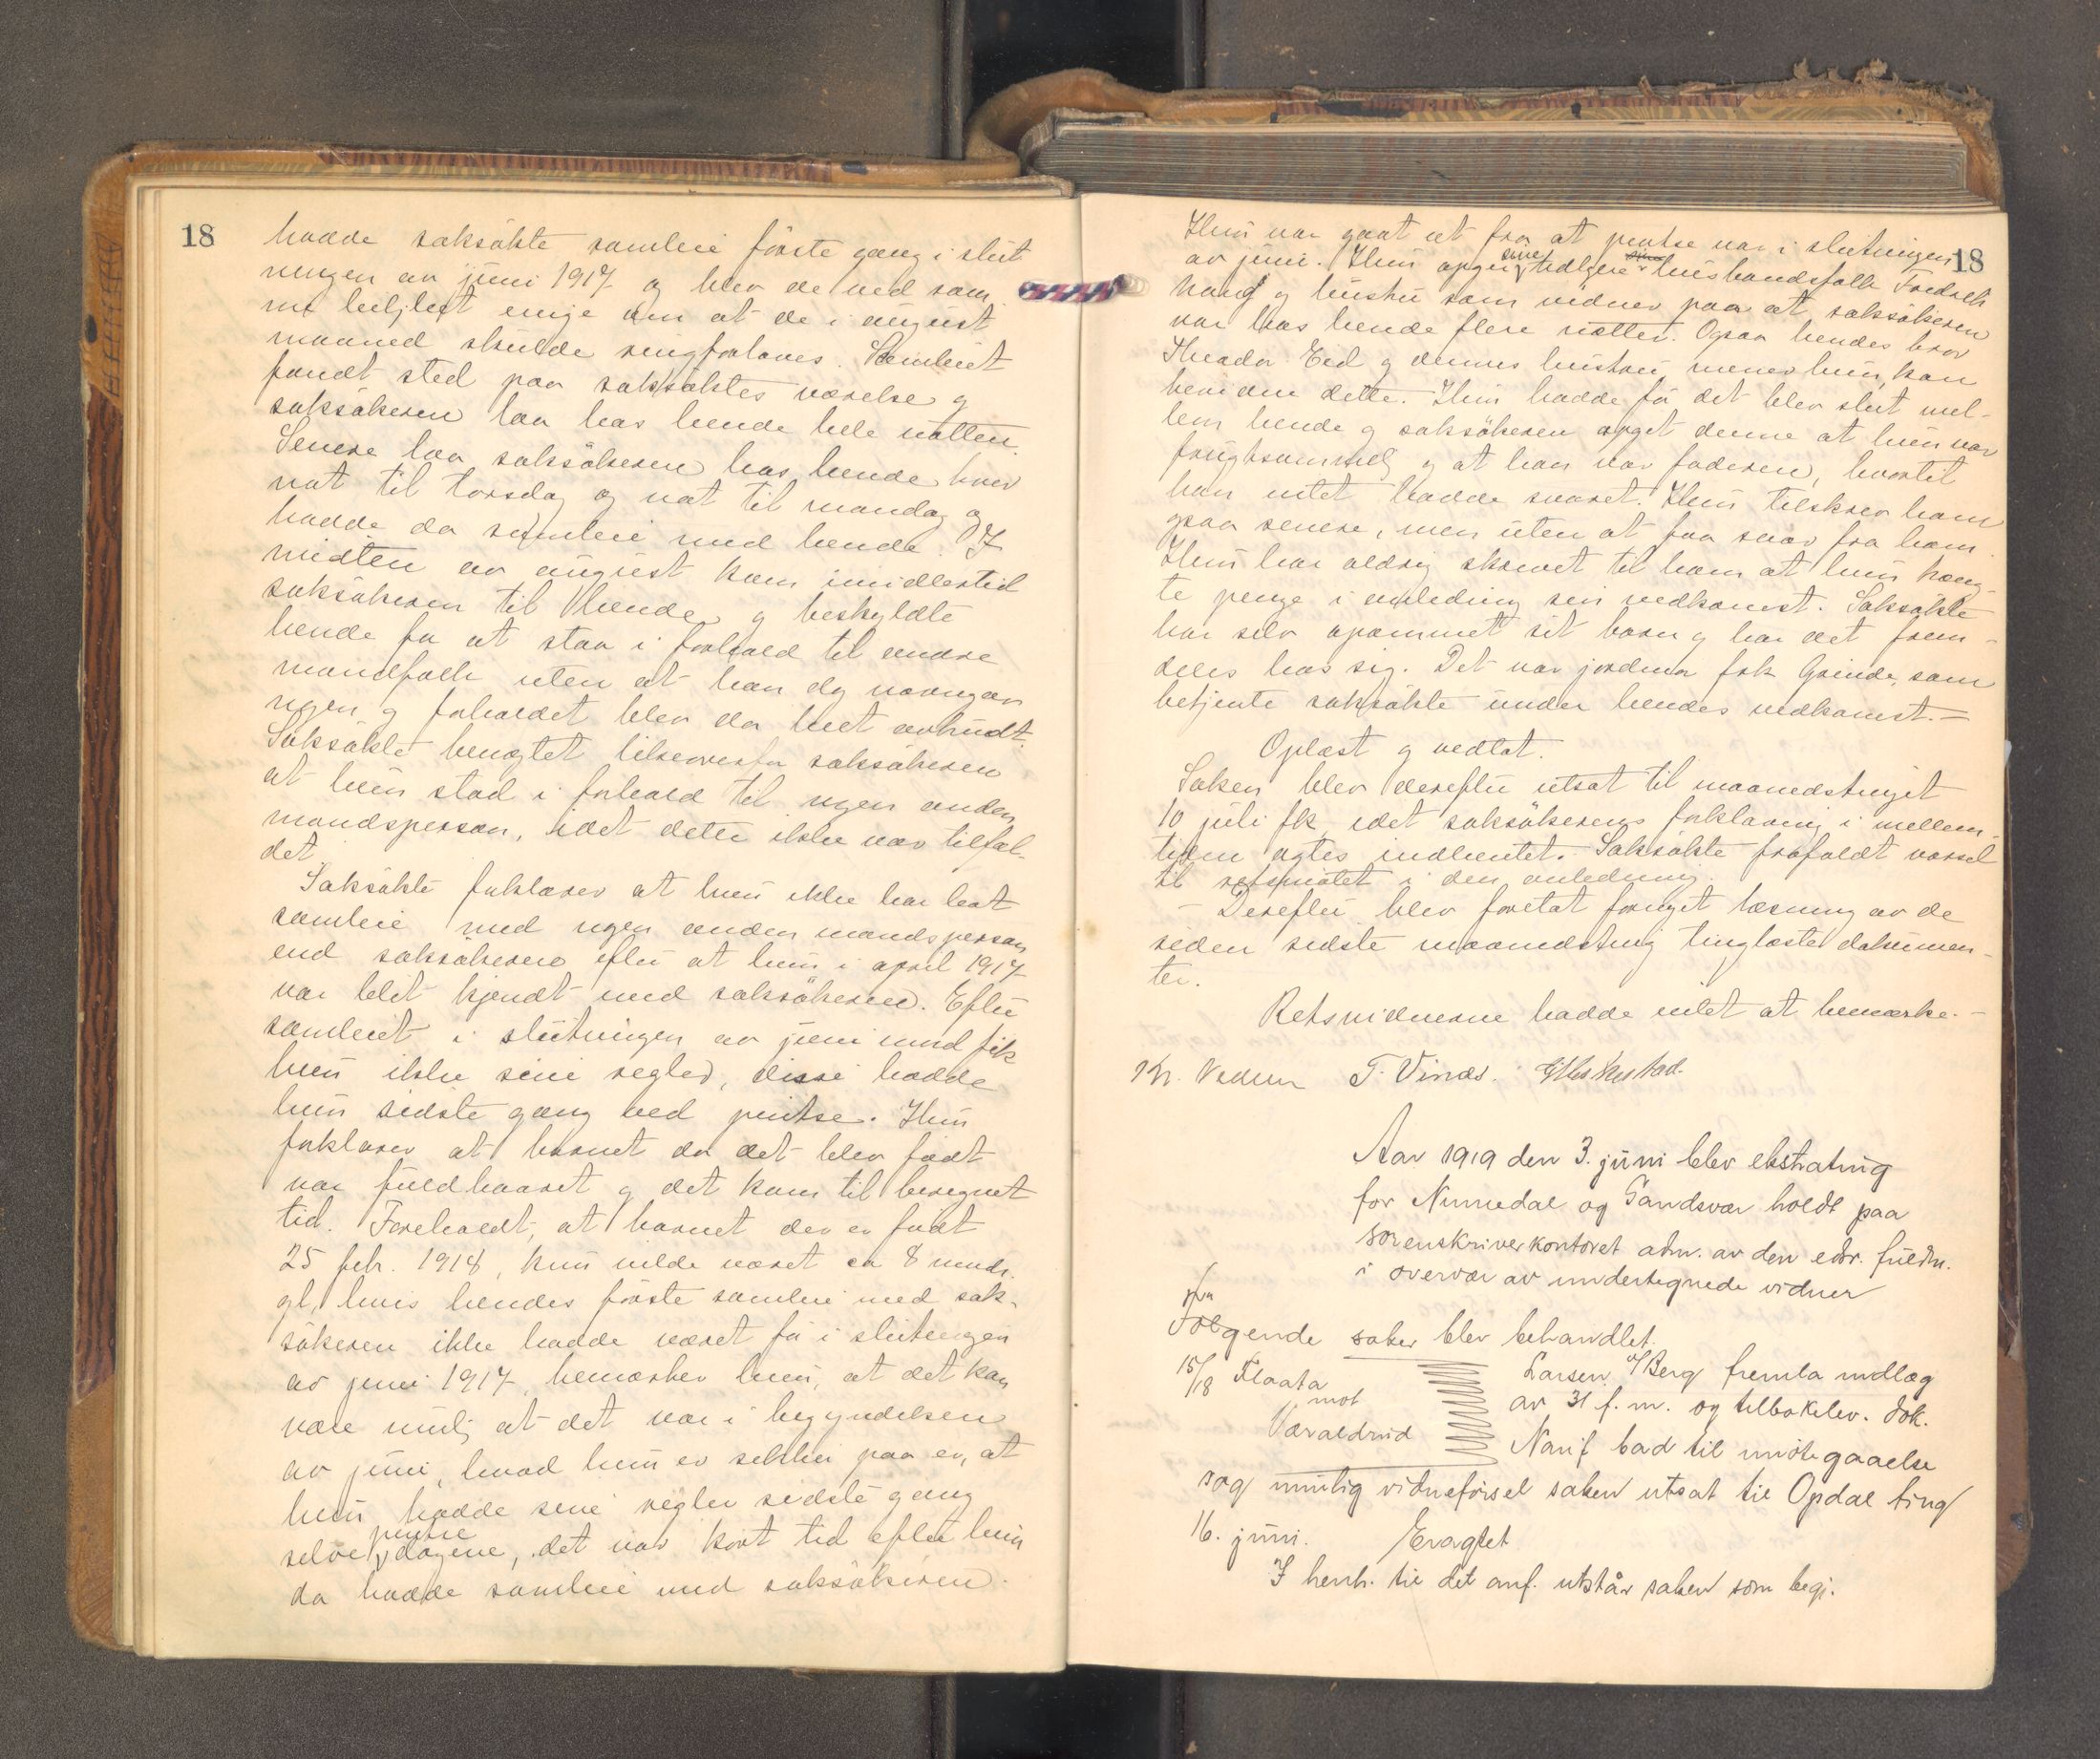 18
hadde saksökte samleie förste gang i slut
ningen av juni 1917 og blev de ved sam
me leilighet enige om at de i august
maaned skulde ringforloves. Samleiet
fandt sted paa saksöktes værelse og
saksökeren laa hos hende hele natten.
Senere laa saksökeren hos hende hver
nat til torsdag og nat til mandag og
hadde da samleie med hende. I
midten av august kom imidlertid
saksökeren til hende og beskyldte
hende for at staa i forhold til andre
mandfolk uten at han dog navngav
nogen og forholdet blev da helt avbrudt.
Saksökte benegtet likeoverfor saksökeren
at hun stod i forhold til nogen anden
mandsperson, idet dette ikke var tilfæl-
det.
Saksökte forklarer at hun ikke har hat
samleie med nogen anden mandsperson
end saksökeren efter at hun i april 1917
var blit kjendt med saksökeren. Efter
samleiet i slutningen av juni mnd fik
hun ikke sine regler, disse hadde
hun sidste gang ved pintse. Hun
forklarer at barnet da det blev födt
var fuldbaaret og det kom til beregnet
tid. Foreholdt, at barnet der er födt
25 febr. 1918, kun vilde været ca 8 mndr.
gl, hvis hendes förste samleie med sak-
sökeren ikke hadde været för i slutningen
av juni 1917, bemerker hun, at det kan
være mulig at det var i begyndelsen
av juni, hvad hun er sikker paa er, at
hun hadde sine regler sidste gang
selve pintsedagene, det var kort tid efter hun
da hadde samleie med saksökeren.
18
Hun var gaat ut fra at pintse var i slutningen
av juni. Hun opgir sine tidligere husbondsfolk Fredrik
Haug og hustru som vidner paa at saksökeren
var hos hende flere nætter. Ogsaa hendes bror
Theodor Eid og dennes hustru, mener hun, kan
bevidne dette. Hun hadde för det blev slut mel-
lem hende og saksökeren opgit denne at hun var
frugtsommelig og at han var faderen, hvortil
han intet hadde svaret. Hun tilskrev ham
ogsaa senere, men uten at faa svar fra ham.
Hun har aldrig skrevet til ham at hun træng-
te penge i anledning sin nedkomst. Saksökte
har selv opammet sit barn og har det frem-
deles hos sig. Det var jordmor frk Grinde, som
betjente saksökte under hendes nedkomst.-
Oplæst og vedtat.
Saken blev derefter utsat til maanedstinget
10 juli fk, idet saksökerens forklaring i mellem-
tiden agtes indhentet. Saksökte frafaldt varsel
til retsmötet i den anledning.
- Derefter blev foretat forsget læsning av de
siden sidste maanedsting tinglæste dokumen-
ter.
Retsvidnerne hadde intet at bemerke.-
T. Vinæs.
Aar 1919 den 3. juni blev ekstrating
for Numedal og Sandsvær holdt paa
sorenskriverkontoret adm. av den edsv. fuldm.
i overvær av undertegnede vidner
Fölgende saker blev behandlet.
15/18 Flaata
mot
Væraldrud
Larsen v/Berg fremla indlæg
av 31 f. m. og tilbakelev. dok.
bad til imötegaaelse
og mulig vidneförsel saken utsat til Opdal ting
16. juni.
Eragtet
I henh. til det anf. utstår saken som begj.